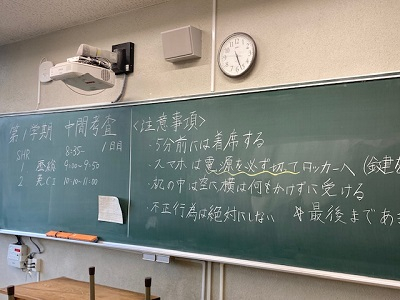 第1学期 中間考査
1日目
SHR 8:35-
1 歴総 9:00-9:50
2 英CI 10:10-11:00
<注意事項>
・5分前には着席する
・スマホは電源を必ず切ってロッカーへ(鍵を
・机の中は空に横は何もかけずに受ける
・不正行為は絶対にしない ☆最後まであき